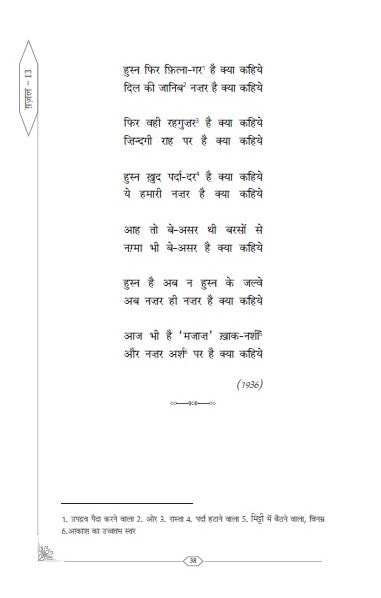 ग़ज़ल – 13
हुस्न फिर फ़ित्ना-गर¹ है क्या कहिये
दिल की जानिब² नज़र है क्या कहिये
फिर वही रहगुज़र³ है क्या कहिये
ज़िन्दगी राह पर है क्या कहिये
हुस्न ख़ुद पर्दा-दर⁴ है क्या कहिये
ये हमारी नज़र है क्या कहिये
आह तो बे-असर थी बरसों से
नग़्मा भी बे-असर है क्या कहिये
हुस्न है अब न हुस्न के जल्वे
अब नज़र ही नज़र है क्या कहिये
आज भी है 'मजाज़' ख़ाक-नशीं⁵
और नज़र अर्श⁶ पर है क्या कहिये
(1936)
1. उपद्रव पैदा करने वाला 2. ओर 3. रास्ता 4. पर्दा हटाने वाला 5. मिट्टी में बैठने वाला, विनम्र
6.आकाश का उच्चतम स्तर
38